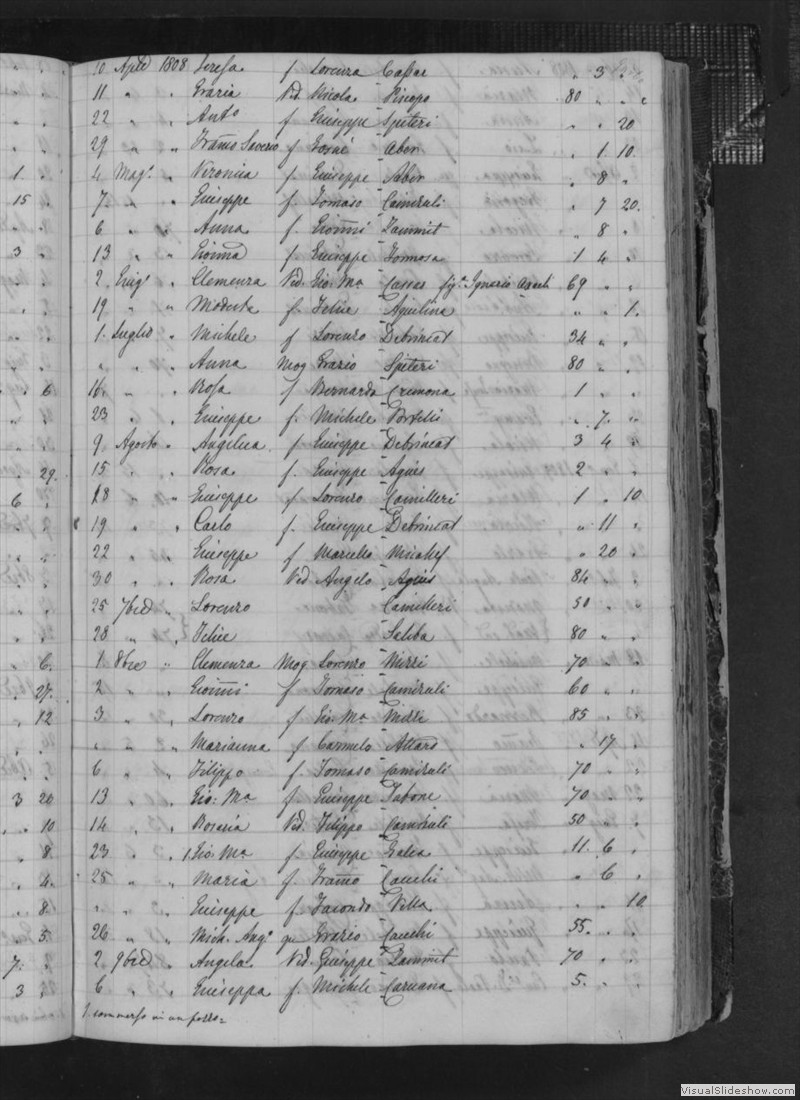 10 Aple 1808 Teresa f Lorenza Cassar " 3 "
11 " " Grazia Vid. Nicola Psingo 80 " "
22 " " Anto f Giuseppe Spiteri " " 20
29 " " Franco Saverio f Giosue Abin " 1 10
1 " 4 Maggo " Veronica f Giuseppe Sabin " 8 "
15 " 7 " " Giuseppe f. Tomaso Camirati " 7 20
6 " " Anna f. Gionni Zammit " 8 "
3 " 13 " " Gionna f Giuseppe Formosa 1 4 "
2 Giugo " Clemenza Vid. Gio. Ma Cassar Ignazio 69 " "
19 " " Modesta f. Felice Aquilina " " 1.
1. Luglio " Michele f Lorenzo Debrincat 34 " "
" " " Anna Mog Grazio Spiteri 80 " "
" 6 16 " " Rosa f Bernardo Cremona 1 " "
23 " " Giuseppe f. Michele Portelli " 7. "
9. Agosto " Angelica f Giuseppe Debrincat 3 4 "
" 29. 15 " " Rosa f. Giuseppe Agius 2 " "
6 " 18 " " Giuseppe f Lorenzo Camilleri 1 " 10
19 " " Carlo f. Giuseppe Debrincat " 11 "
22 " " Giuseppe f Mariella " 20 "
30 " " Rosa Vid Angelo Agius 84 " "
25 7bre " Lorenzo Camilleri 50 " "
28 " " Felice Saliba 80 " "
" 6. 1 8bre " Clemenza Mog Lorenzo Mizzi 70 " "
" 27. 2 " " Gionni f Tomaso Camirati 60 " "
" 12 3 " " Lorenzo f Gio. Ma Mizzi 85 " "
" " " Marianna f Carmelo Attard " 17 "
6 " " Filippo f. Tomaso Camirati 70 " "
3 20 13 " " Gio. Ma f. Giuseppe Tabone 70 " "
" 10 14 " " Rosaria Vid. Filippo Camirati 50 " "
" 8 23 " " 1 Gio. Ma f Giuseppe Galea 11. 6 "
" 4. 25 " " Maria f. Franco Cauchi " 6 "
" 8. " " " Giuseppe f. Facondo Vella " " 10
" 5. 26 " " Mich. Ango qu Grazio Cauchi 55. " "
7. " 2 9bre " Angela Vid. Giuseppe Zammit 70 " "
3 " 6 " " Giuseppa f. Michele Caruana 5. " "
1. sommerso in un pozzo=
VisualSlideshow.com